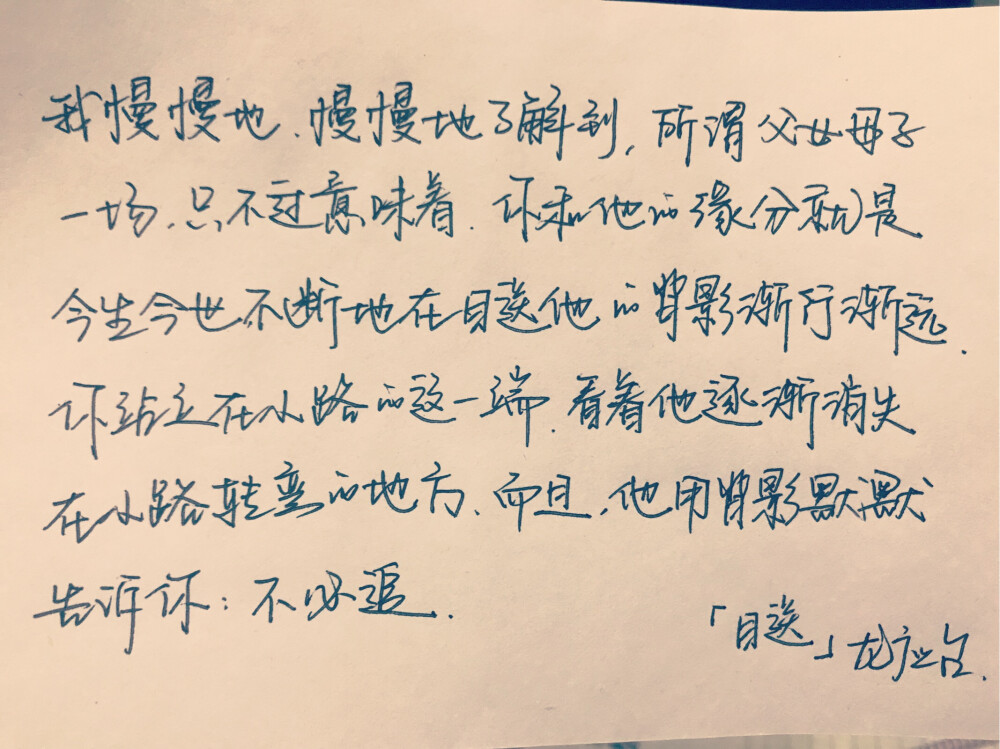 我慢慢地、慢慢地了解到,所谓父女母子
一场,只不过意味着,你和他的缘分就是
今生今世不断地在目送他的背影渐行渐远.
你站立在小路的这一端,看着他逐渐消失
在小路转弯的地方,而且,他用背影默默
告诉你:不必追.
「目送」龙应台.